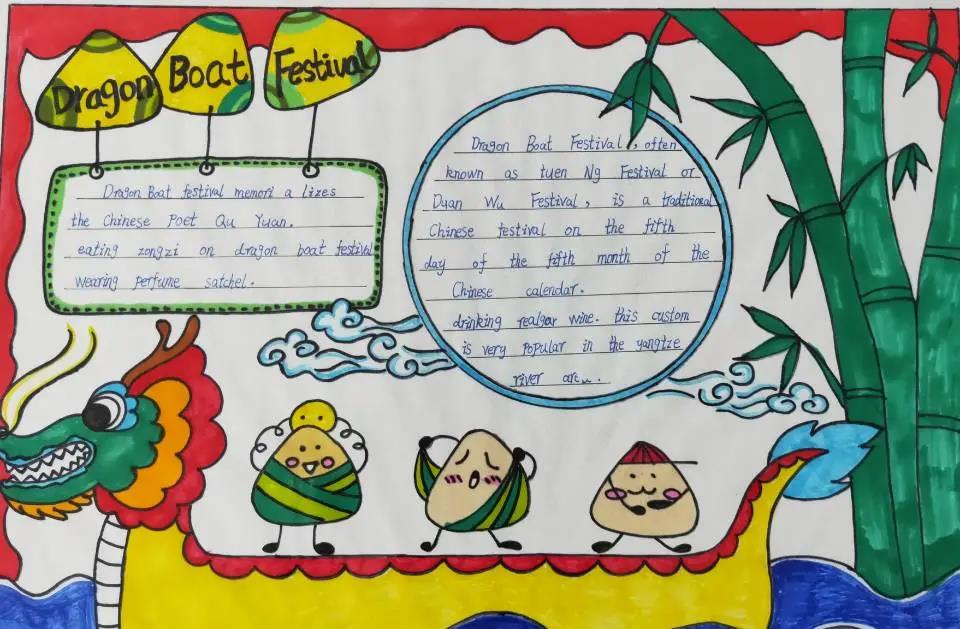 Dragon Boat Festival
Dragon Boat festival memori a lizes
the Chinese Poet Qu Yuan.
eating zongzi on dragon boat festival
wearing perfume satchel.
Dragon Boat Festival, often
known as tuen Ng Festival or
Duan Wu Festival, is a traditional
Chinese festival on the fifth
day of the fifth month of the
Chinese calendar.
drinking realgar wine. this custom
is very popular in the yangtze
river